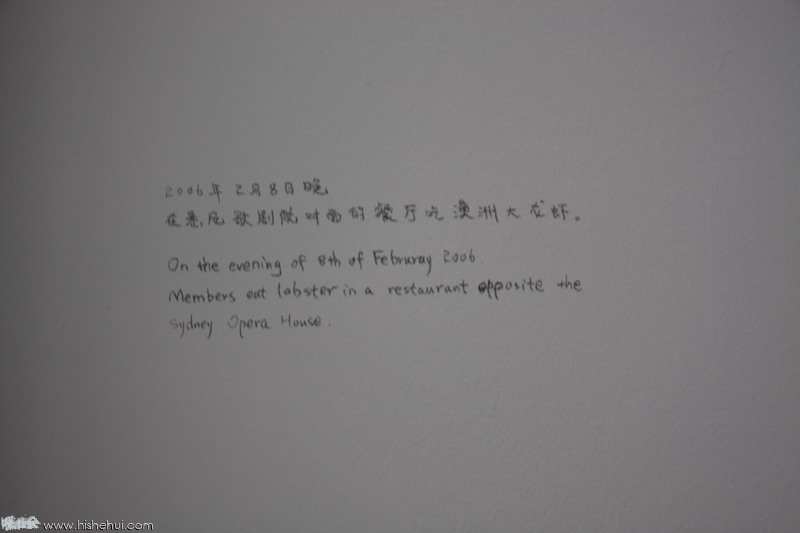 2006年 2月8日晚
在悉尼歌剧院对面的餐厅吃澳洲大龙虾。
On the evening of 8th of Februray 2006.
Members eat lobster in a restaurant opposite the
Sydney Opera House.
www.hishehui.com